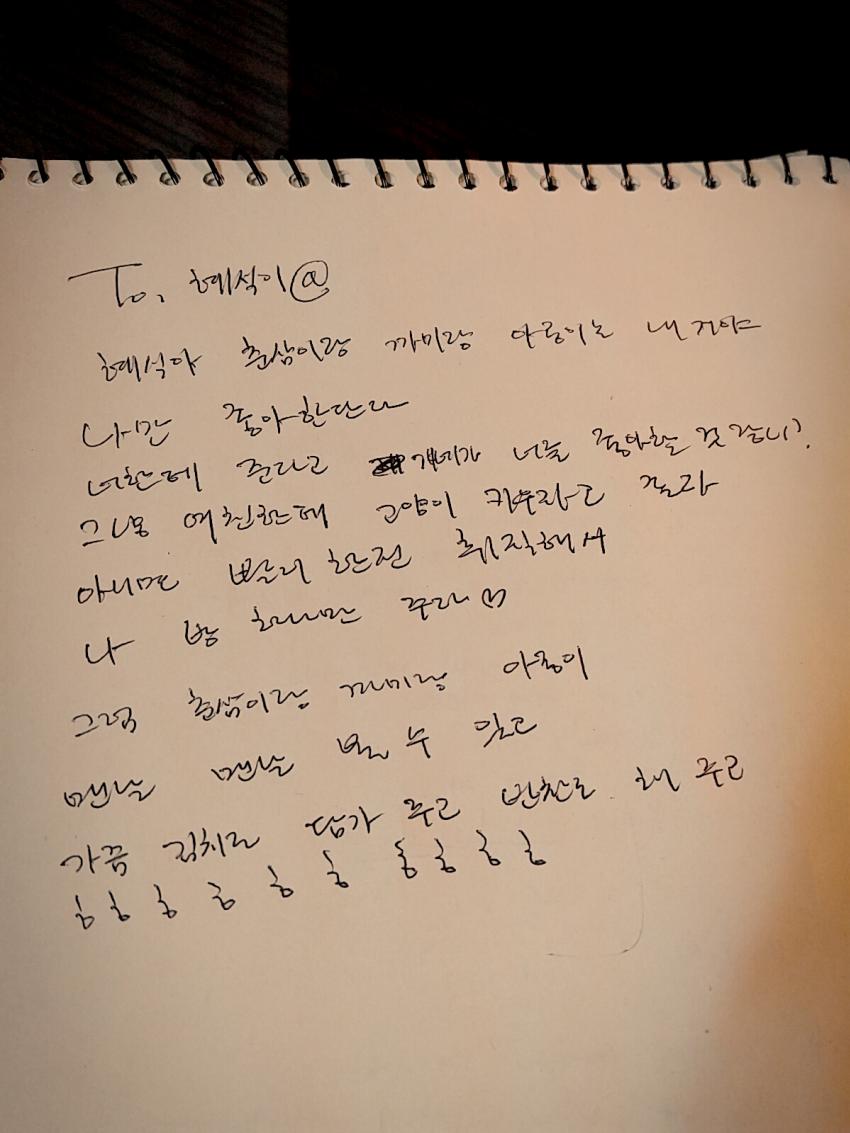 To. 혜석이@
혜석아 춘삼이랑 까미랑 아롱이는 내 거야
나만 좋아한단다
너한테 준다고 걔네가 너를 좋아할 것 같니?
그냥 여친한테 고양이 키우라고 졸라
아니면 빨리 한전 취직해서
나 방 하나만 주라♡
그럼 춘삼이랑 까미랑 아롱이
맨날 맨날 볼 수 있고
가끔 김치도 담가 주고 반찬도 해 주고